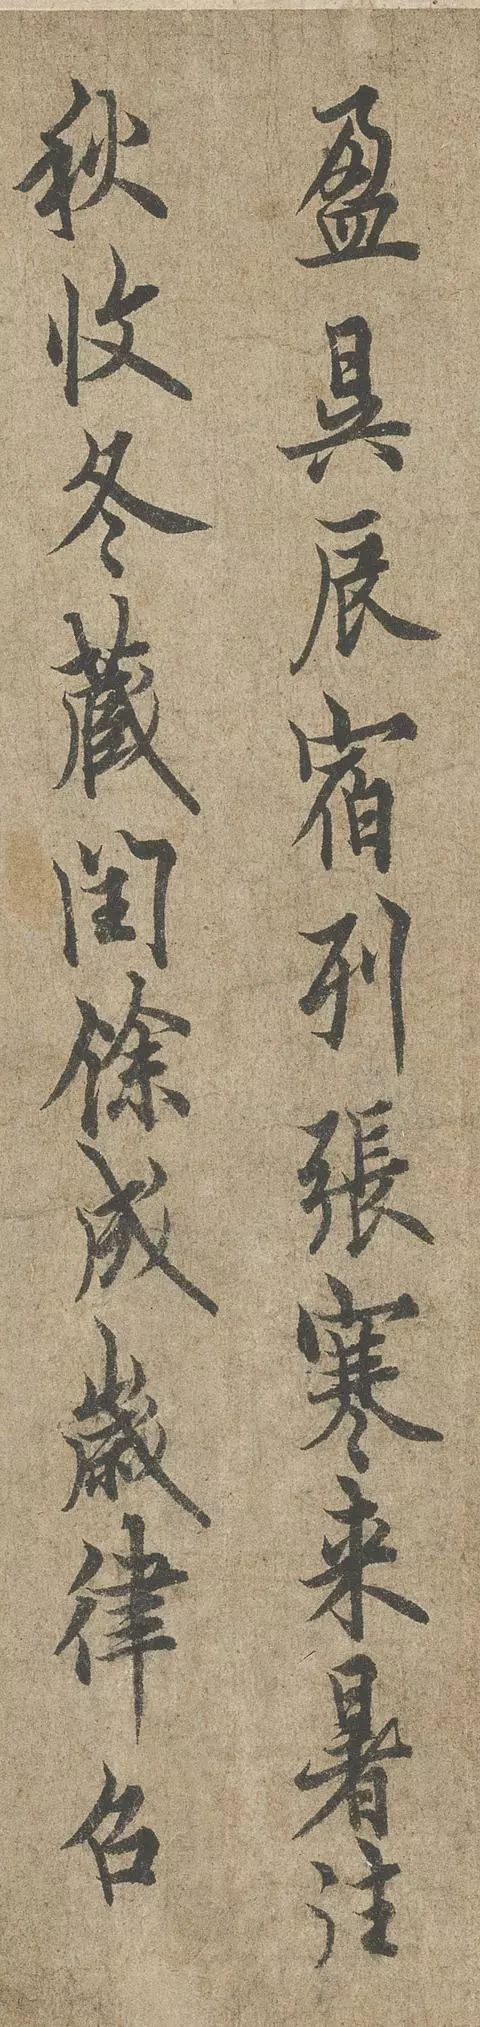 盈昃辰宿列張寒来暑往
秋收冬蔵閏餘成歳律召